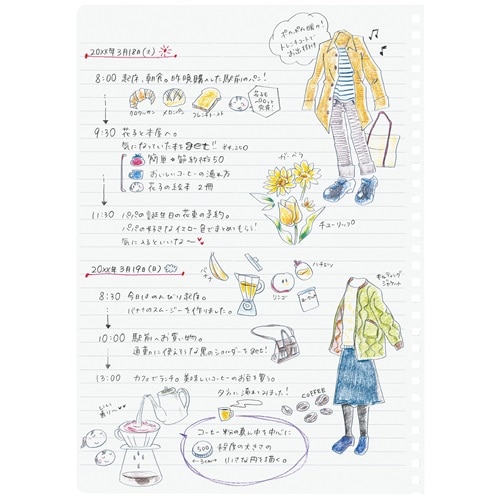 20XX年3月18日(土)
8:00 起床、朝食。昨晩購入した駅前のパン!
クロワッサン メロンパン フレンチトースト
花子もペロッと完食!
ポカポカ陽気!
トレンチコートで
お出掛け
9:30 花子と本屋へ。
気になっていた本をget!! ¥4,250
簡単★節約術50
おいしいコーヒーの淹れ方
花子の絵本 2冊
ガーベラ
チューリップ
11:30 パパの誕生日の花束の予約。
パパの好きなイエロー色でまとめてもらう!
気に入るといいな〜
20XX年3月19日(日)
8:30 今日はのんびり起床。
バナナのスムージーを作りました。
バナナ
ハチミツ
リンゴ
キルティング
ジャケット
10:00 駅前へお買い物。
通勤に使えそうな黒のショルダーをget!
13:00 カフェでランチ。美味しいコーヒーのお豆を買う。
夕方に淹れてみました!
COFFEE
いい
香り〜
コーヒー粉の真ん中を中心に
500 程度の大きさの
←3cm→ 小さな円を描く。